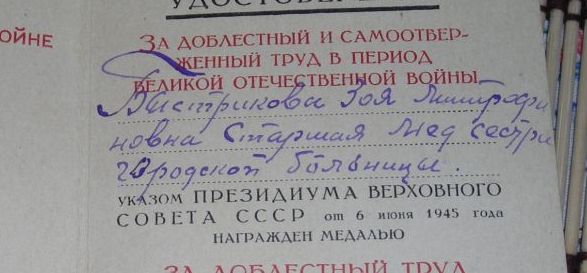 УДОСТОВЕ
ОЙНЕ
ЗА ДОБЛЕСТНЫЙ И САМООТВЕР-
ЖЕННЫЙ ТРУД В ПЕРИОД
ВЕЛИКОЙ ОТЕЧЕСТВЕННОЙ ВОЙНЫ
Быстрикова Зоя Митрофа
новна Старшая Мед сестра
городской больницы.
УКАЗОМ ПРЕЗИДИУМА ВЕРХОВНОГО
СОВЕТА СССР от 6 июня 1945 года
НАГРАЖДЕН МЕДАЛЬЮ
ЗА ДОБЛЕСТНЫЙ ТРУД